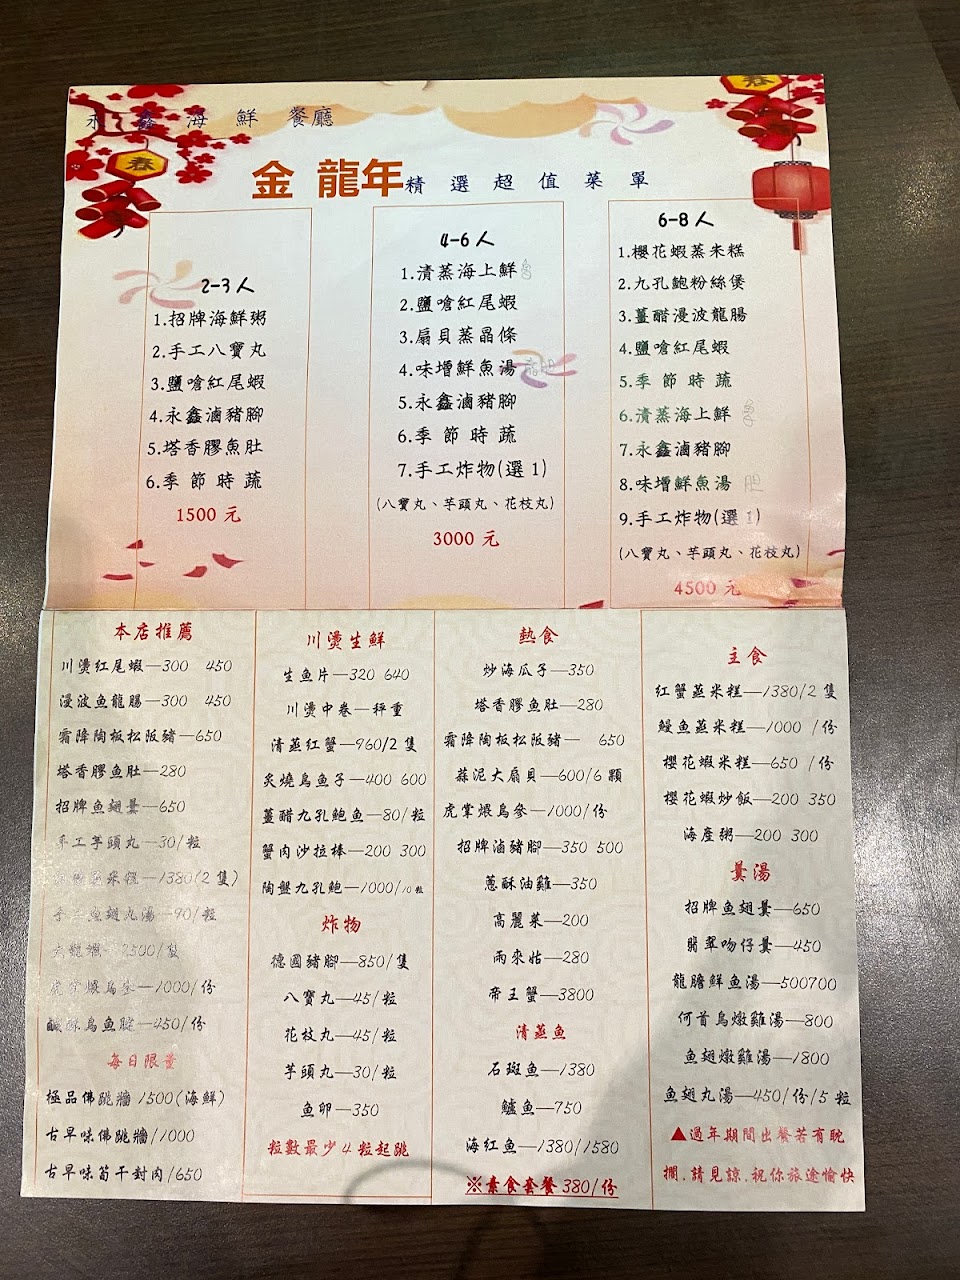 永鑫海鮮餐廳
金龍年精選超值菜單
2-3人
1.招牌海鮮粥
2.手工八寶丸
3.鹽嗆紅尾蝦
4.永鑫滷豬腳
5.塔香膠魚肚
6.季節時蔬
1500元
4-6人
1.清蒸海上鮮
2.鹽嗆紅尾蝦
3.扇貝蒸晶條
4.味增鮮魚湯
5.永鑫滷豬腳
6.季節時蔬
7.手工炸物(選1)
(八寶丸、芋頭丸、花枝丸)
3000元
6-8人
1.櫻花蝦蒸米糕
2.九孔鮑粉絲煲
3.薑醋漫波龍腸
4.鹽嗆紅尾蝦
5.季節時蔬
6.清蒸海上鮮
7.永鑫滷豬腳
8.味增鮮魚湯
9.手工炸物(選1)
(八寶丸、芋頭丸、花枝丸)
4500元
本店推薦
川燙紅尾蝦—300 450
漫波魚龍腸—300 450
霜降陶板松阪豬—650
塔香膠魚肚—280
招牌魚翅羹—650
手工芋頭丸—30/粒
紅蟳蒸米糕—1380(2隻)
手工魚翅丸湯—90/粒
2500/隻
虎掌煨烏參—1000/份
鹹酥烏魚腱—450/份
每日限量
極品佛跳牆1500(海鮮)
古早味佛跳牆/1000
古早味筍干封肉/650
川燙生鮮
生魚片—320 640
川燙中卷—秤重
清蒸紅蟹—960/2隻
炙燒烏魚子—400 600
薑醋九孔鮑魚—80/粒
蟹肉沙拉棒—200 300
陶盤九孔鮑—1000/10粒
炸物
德國豬腳—850/隻
八寶丸—45/粒
花枝丸—45/粒
芋頭丸—30/粒
魚卵—350
粒數最少4粒起跳
熱食
炒海瓜子—350
塔香膠魚肚—280
霜降陶板松阪豬— 650
蒜泥大扇貝—600/6顆
虎掌煨烏參—1000/份
招牌滷豬腳—350 500
蔥酥油雞—350
高麗菜—200
雨來姑—280
帝王蟹—3800
清蒸魚
石斑魚—1380
鱸魚—750
海紅魚—1380/1580
※素食套餐380/份
主食
紅蟹蒸米糕—1380/2隻
鰻魚蒸米糕—1000 /份
櫻花蝦米糕—650 /份
櫻花蝦炒飯—200 350
海產粥—200 300
羹湯
招牌魚翅羹—650
翡翠吻仔羹—450
龍膽鮮魚湯—500700
何首烏燉雞湯—800
魚翅燉雞湯—1800
魚翅丸湯—450/份/5粒
▲過年期間出餐若有耽
擱.請見諒.祝你旅途愉快